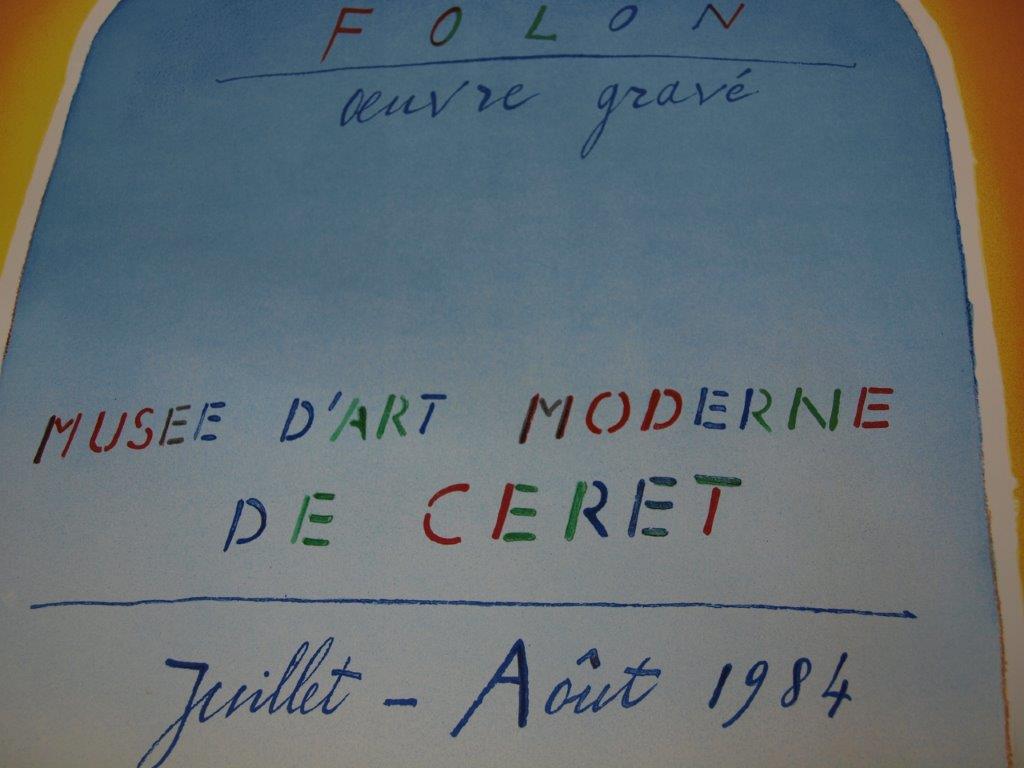 FOLON
œuvre gravé
MUSEE D'ART MODERNE
DE CERET
Juillet - Août 1984